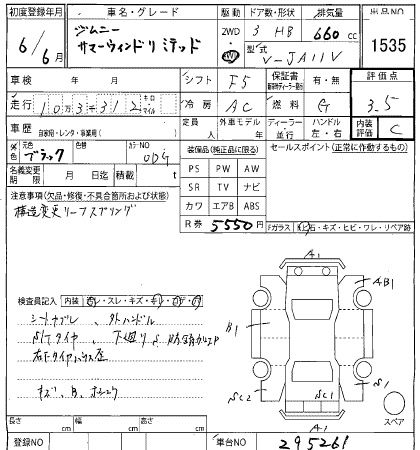 初度登録年月 車名・グレード 駆動 ドア数・形状 排気量 出品NO
6/6月 ジムニー サマーウィンドリミテッド 2WD 4WD 3 HB 660 cc 1535
型式 V-JA11V
車検 年 月 シフト F5 保証書 有・無 評価点
走行 10万3312 キロ マイル 冷房 AC 燃料 G 3.5
車歴 自家用・レンタ・事業用( ) 定員 人 外車モデル 年 ディーラー 並行 ハンドル 左・右 内装評価 C
元色 ブラック 色 カラーNO ODG 装備品(純正品に限る) セールスポイント(正常に作動するもの)
名義変更期限 月 日迄 積載 t PS PW AW
注意事項(欠品・修復・不具合箇所および状態) SR TV ナビ
構造変更リーフスプリング カワ エアB ABS
R券 5550円 Fガラス
石・キズ・ヒビ・ワレ・リペア跡
A1
AB1
検査員記入 内装
スレ・キズ
シートカブレ、外ハンドル B1
S/Tタイヤ、下廻り
右下タイヤハウス
キズ、B、
SC2 SC1 S1
スペア
A1
長さ cm 幅 cm 高さ cm
登録NO 車台NO 295261